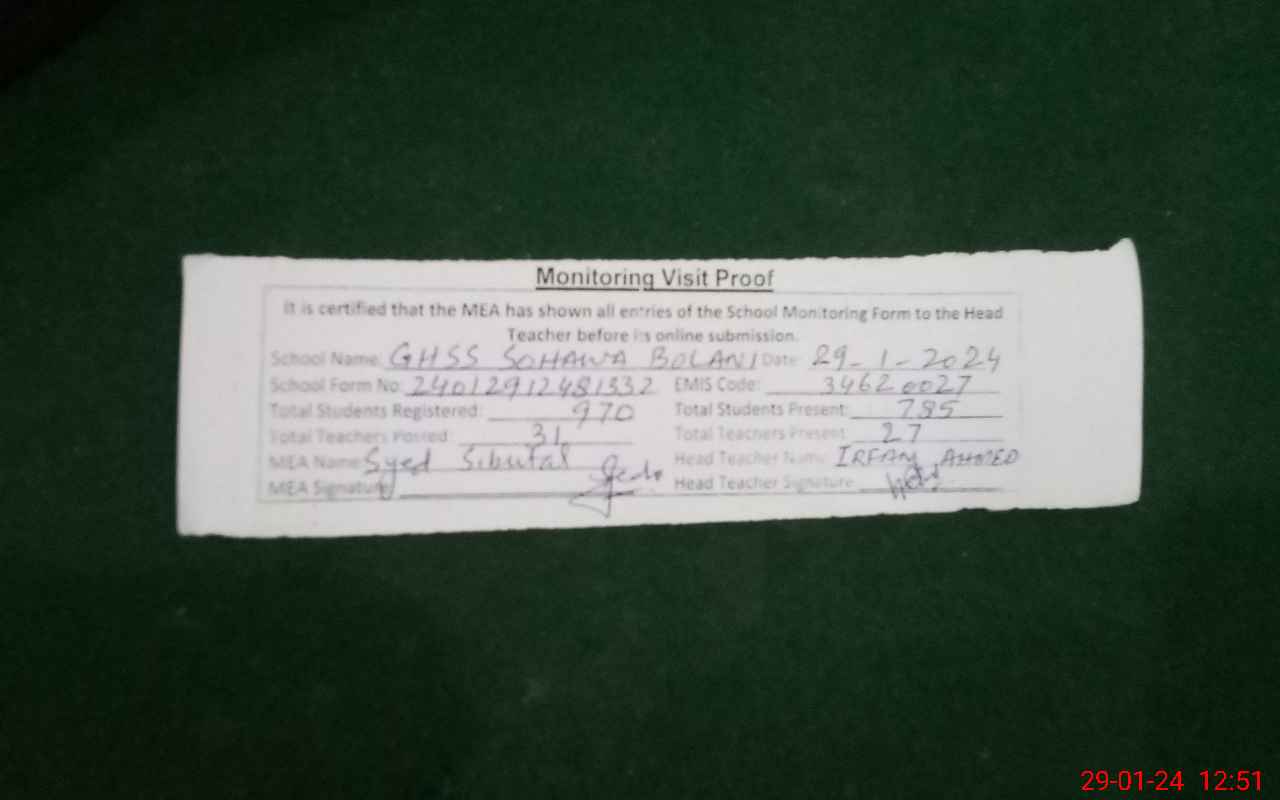 Monitoring Visit Proof
It is certified that the MEA has shown all entries of the School Monitoring Form to the Head
Teacher before its online submission.
School Name: GHSS SOHAWA BOLANI Date: 29-1-2024
School Form No: 24012912481332 EMIS Code: 34620027
Total Students Registered: 970 Total Students Present: 785
Total Teachers Posted: 31 Total Teachers Present: 27
MEA Name: Syed Sibutal Head Teacher Name: IRFAN AHMED
MEA Signature Head Teacher Signature
29-01-24 12:51